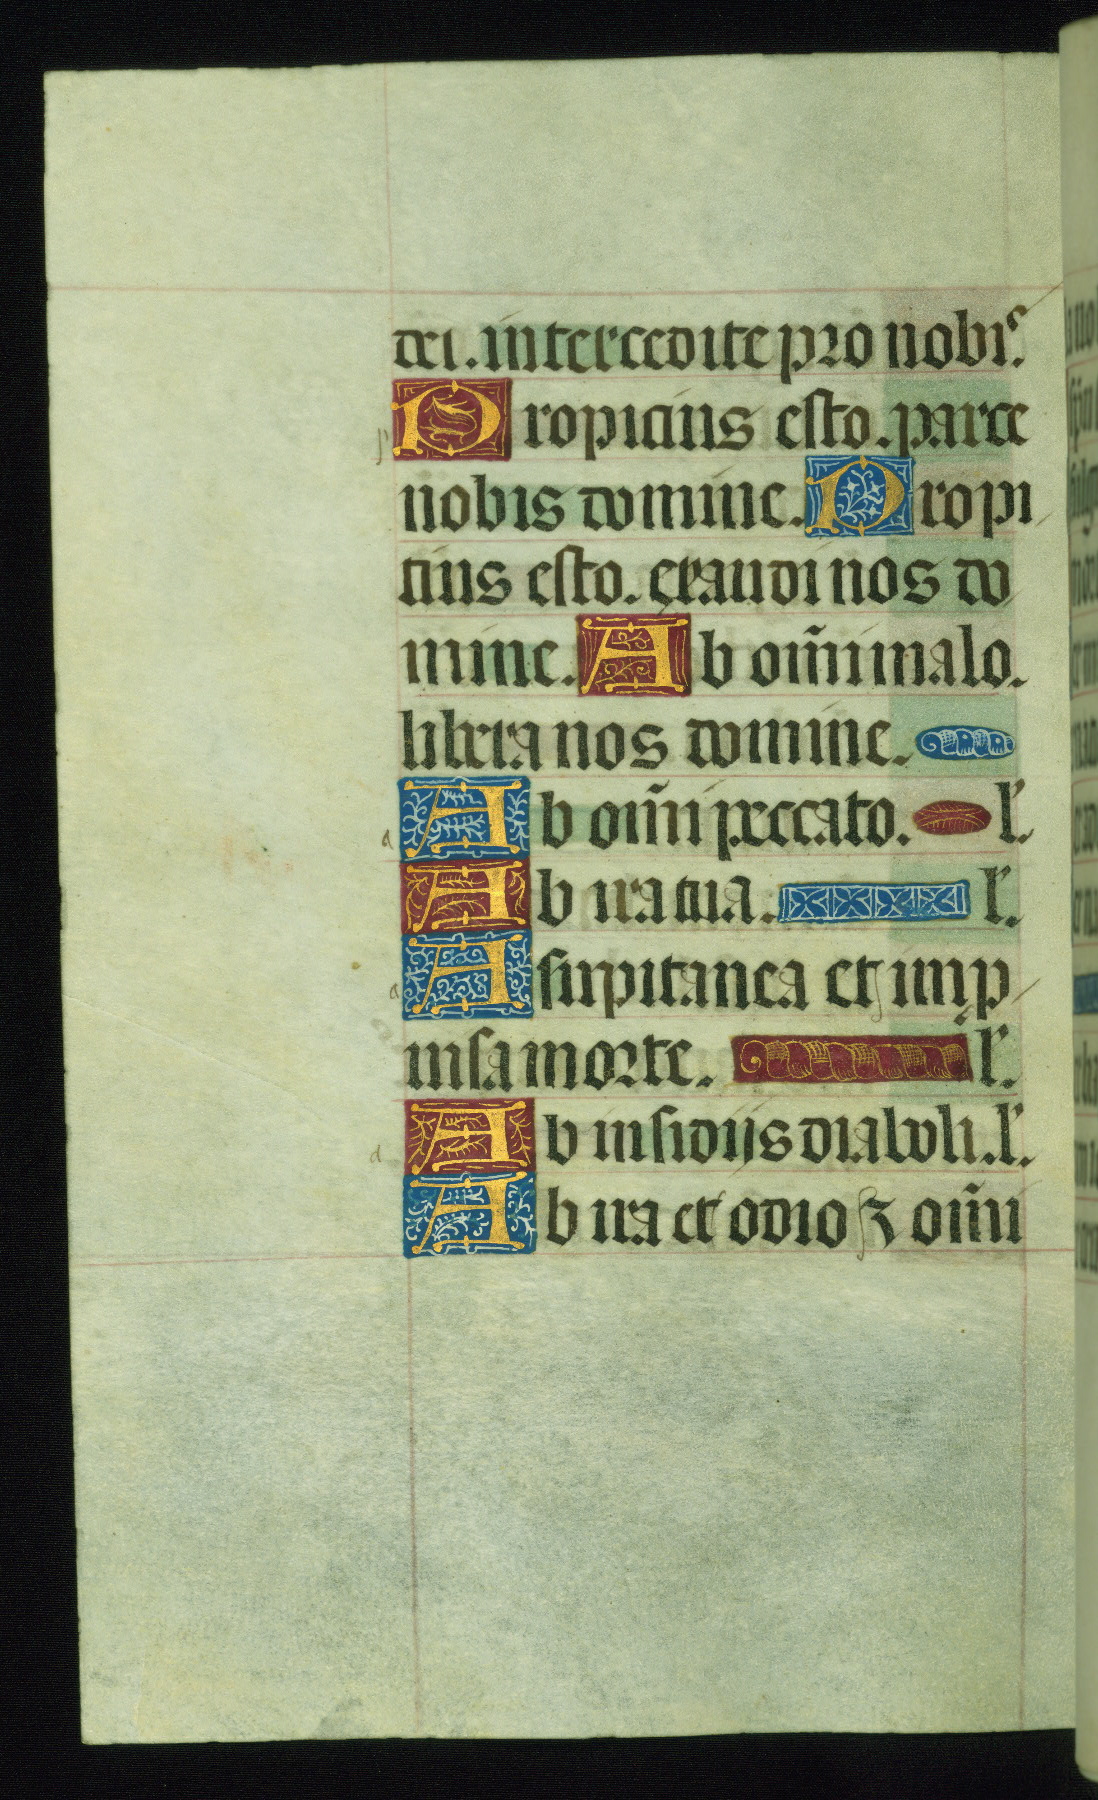 dei. intercedite pro nobis.
Propicius esto. parce
nobis domine. Propi
tius esto. exaudi nos do
mine. Ab om̃i malo.
libera nos domine.
Ab om̃i peccato. l'.
Ab ira tua. l'.
A supitanea et imp
uisa morte. l'.
Ab insidijs diaboli. l'.
Ab ira et odio ⁊ om̃i